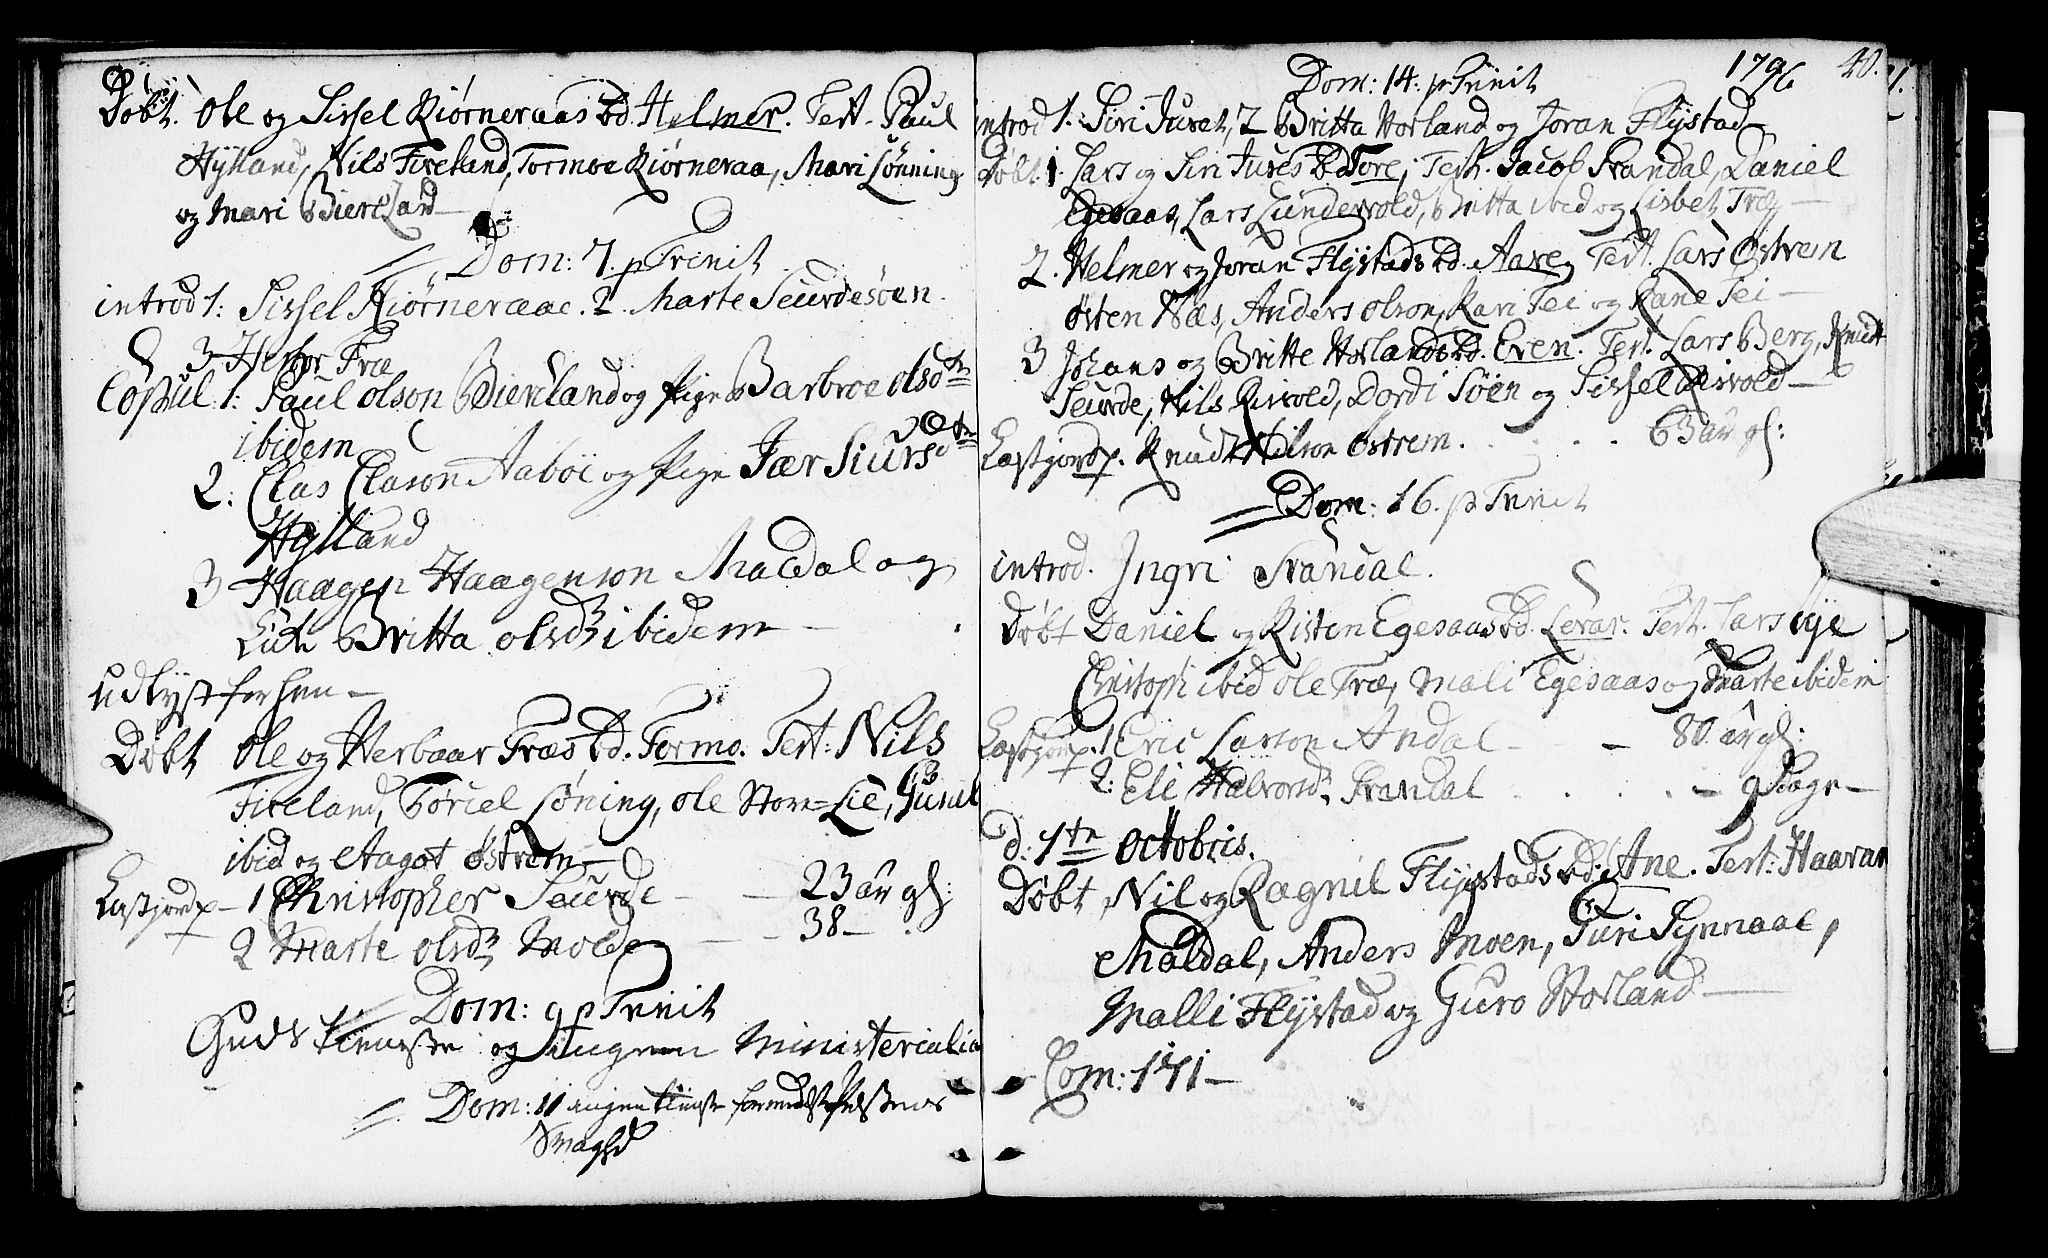 Døbt. Ole og Sissel Kiørneraas bd. Helmer. Test. Paul
Hylland, Nils Fixeland, Tormoe Kiørneraa, Mari Lønning
og Mari Biereland
Dom: 7. p Trinit
introd 1: Sissel Kiørneraae. 2. Marte Seurdesøen.
3 Herbor Træ
Copul. 1: Paul Olson Biereland og Pige Barbroe Olsdtr
ibidem
2: Clas Clason Aaboe og Pige Jær Siursdtr
Hylland
3 Haagen Haagenson Maldal og
Britta Olsdr ibidem
udlyst forhen
Døbt Ole og Herbaar Træs bd. Tormo. Test: Nils
Fixeland, Tørcel Løning, Ole Store=Lie, Gunil
ibid og Aagot Østrem
Lastjordp. 1 Christopher Seurde 23 aar gl:
2 Marte Olsdr Molde 38
Dom: 9 p Trinit
Guds tieneste og Ingen Ministerialia
Dom: 11 ingen tieneste formedelst Præstens
Svaghd
1796 40.
Dom: 14. p Trinit
introd 1. Siri Juvet, 2 Britta Horland og Joran Flystad
Døbt 1. Lars og Siri Juves bd Tore, Test. Jacob Frandal, Daniel
Egesaas, Lars Lundevold, Britta ibid og Lisbet Træ
2. Helmer og Joran Flystads bd. Aare, Test. Lars Østrem
Østen Næs, Anders Olson, Kari Tei og Rane Tei
3 Johans og Britte Horlands bd. Even. Test. Lars Berg, Knudt
Seurde, Nils Risvold, Dordi Søen og Sissel Risvold
Lastjordp. Knud Nilson Østrem. 63 aar gl:
Dom: 16. p Trinit
introd. Ingri Frandal.
Døbt Daniel og Kisten Egesaas bd. Levar. Test. Lars Eije
Christoph ibid Ole Træ, Mali Egesaas og Marte ibidem
Lastjordp. 1 Eric Larson Andal 80 aar gl:
2: Eli Halvorsdr. Frandal 9 Dage
D: 1te Octobris.
Døbt Nil og Ragnil Flystads bd: Ane. Test: Haavar
Maldal, Anders Moen, Turi Synnaae,
Malli Flystad og Guro Horland
Com: 171